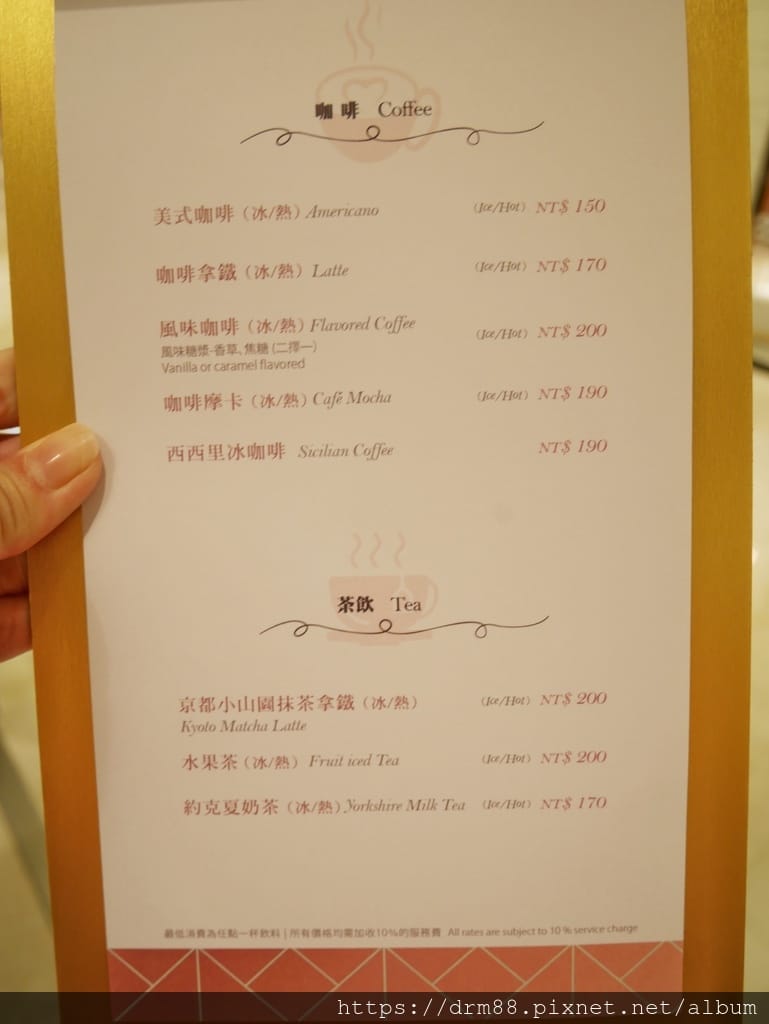 咖啡 Coffee
美式咖啡（冰/熱）Americano （Ice/Hot） NT$ 150
咖啡拿鐵（冰/熱）Latte （Ice/Hot） NT$ 170
風味咖啡（冰/熱）Flavored Coffee （Ice/Hot） NT$ 200
風味糖漿-香草、焦糖（二擇一）
Vanilla or caramel flavored
咖啡摩卡（冰/熱）Café Mocha （Ice/Hot） NT$ 190
西西里冰咖啡 Sicilian Coffee NT$ 190
茶飲 Tea
京都小山園抹茶拿鐵（冰/熱） （Ice/Hot） NT$ 200
Kyoto Matcha Latte
水果茶（冰/熱） Fruit iced Tea （Ice/Hot） NT$ 200
約克夏奶茶（冰/熱）Yorkshire Milk Tea （Ice/Hot） NT$ 170
最低消費為任點一杯飲料 | 所有價格均需加收10%的服務費 All rates are subject to 10 % service charge
https://drm88.pixnet.net/album